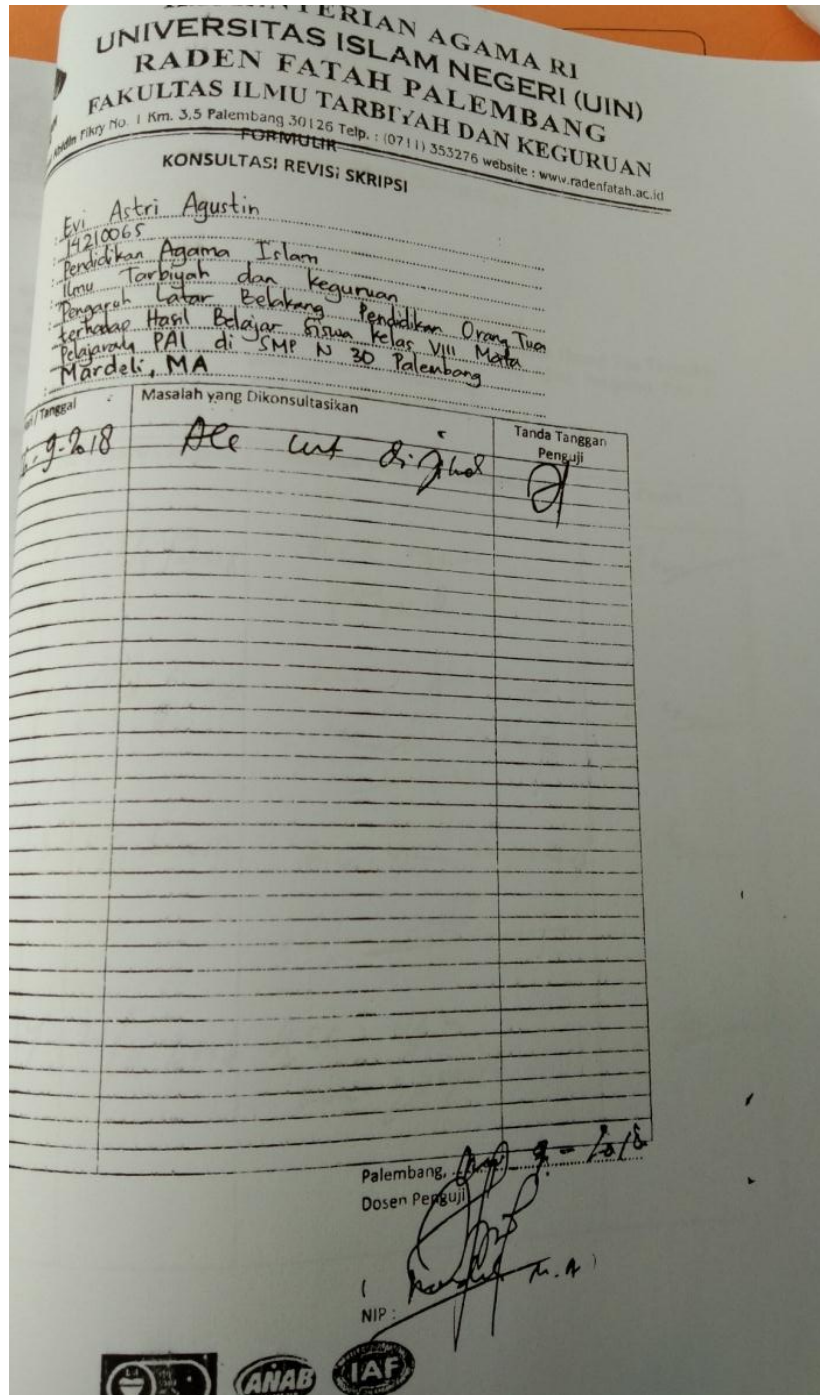 UNIVERSITAS ISLAM NEGERI (UIN)
RADEN FATAH PALEMBANG
FAKULTAS ILMU TARBIYAH DAN KEGURUAN
Fikry No. 1 Km. 3,5 Palembang 30126 Telp. : (0711) 353276 website : www.radenfatah.ac.id
FORMULIR
KONSULTASI REVISI SKRIPSI
: Evi Astri Agustin
: 14210065
: Pendidikan Agama Islam
: Ilmu Tarbiyah dan Keguruan
: Pengaruh Latar Belakang Pendidikan Orang Tua
terhadap Hasil Belajar Siswa Kelas VIII Mata
Pelajaran PAI di SMP N 30 Palembang
: Mardeli, MA
/ Tanggal Masalah yang Dikonsultasikan Tanda Tanggan Penguji
9-2018 Acc
Palembang, 9 - 2018
Dosen Penguji
( M.A )
NIP :
ANAB IAF